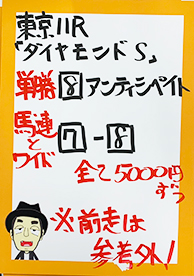 東京11R
「ダイヤモンドS」
単勝 8 アンティシペイト
馬連とワイド 7-8
全て5000円ずつ
※前走は
参考外!